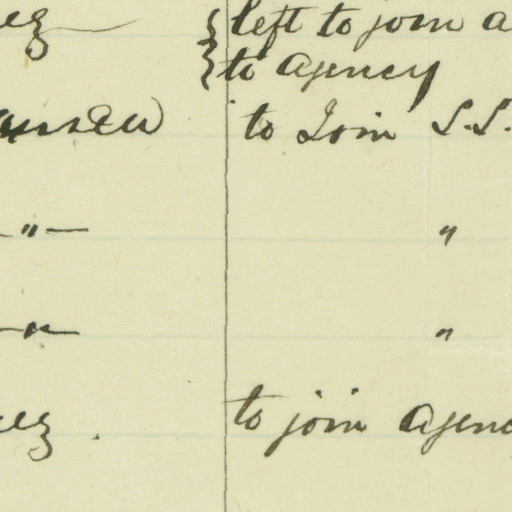 left to join a
to agency
to Join S.S.
— " — "
— " — "
to join agenc